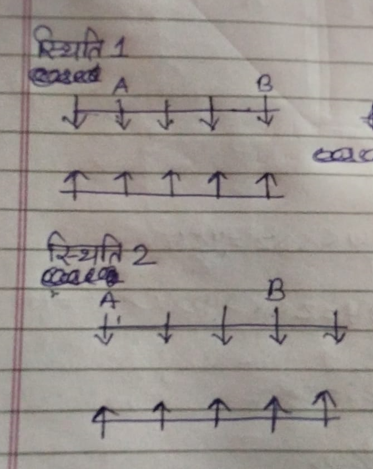 स्थिति 1
A B
स्थिति 2
A B